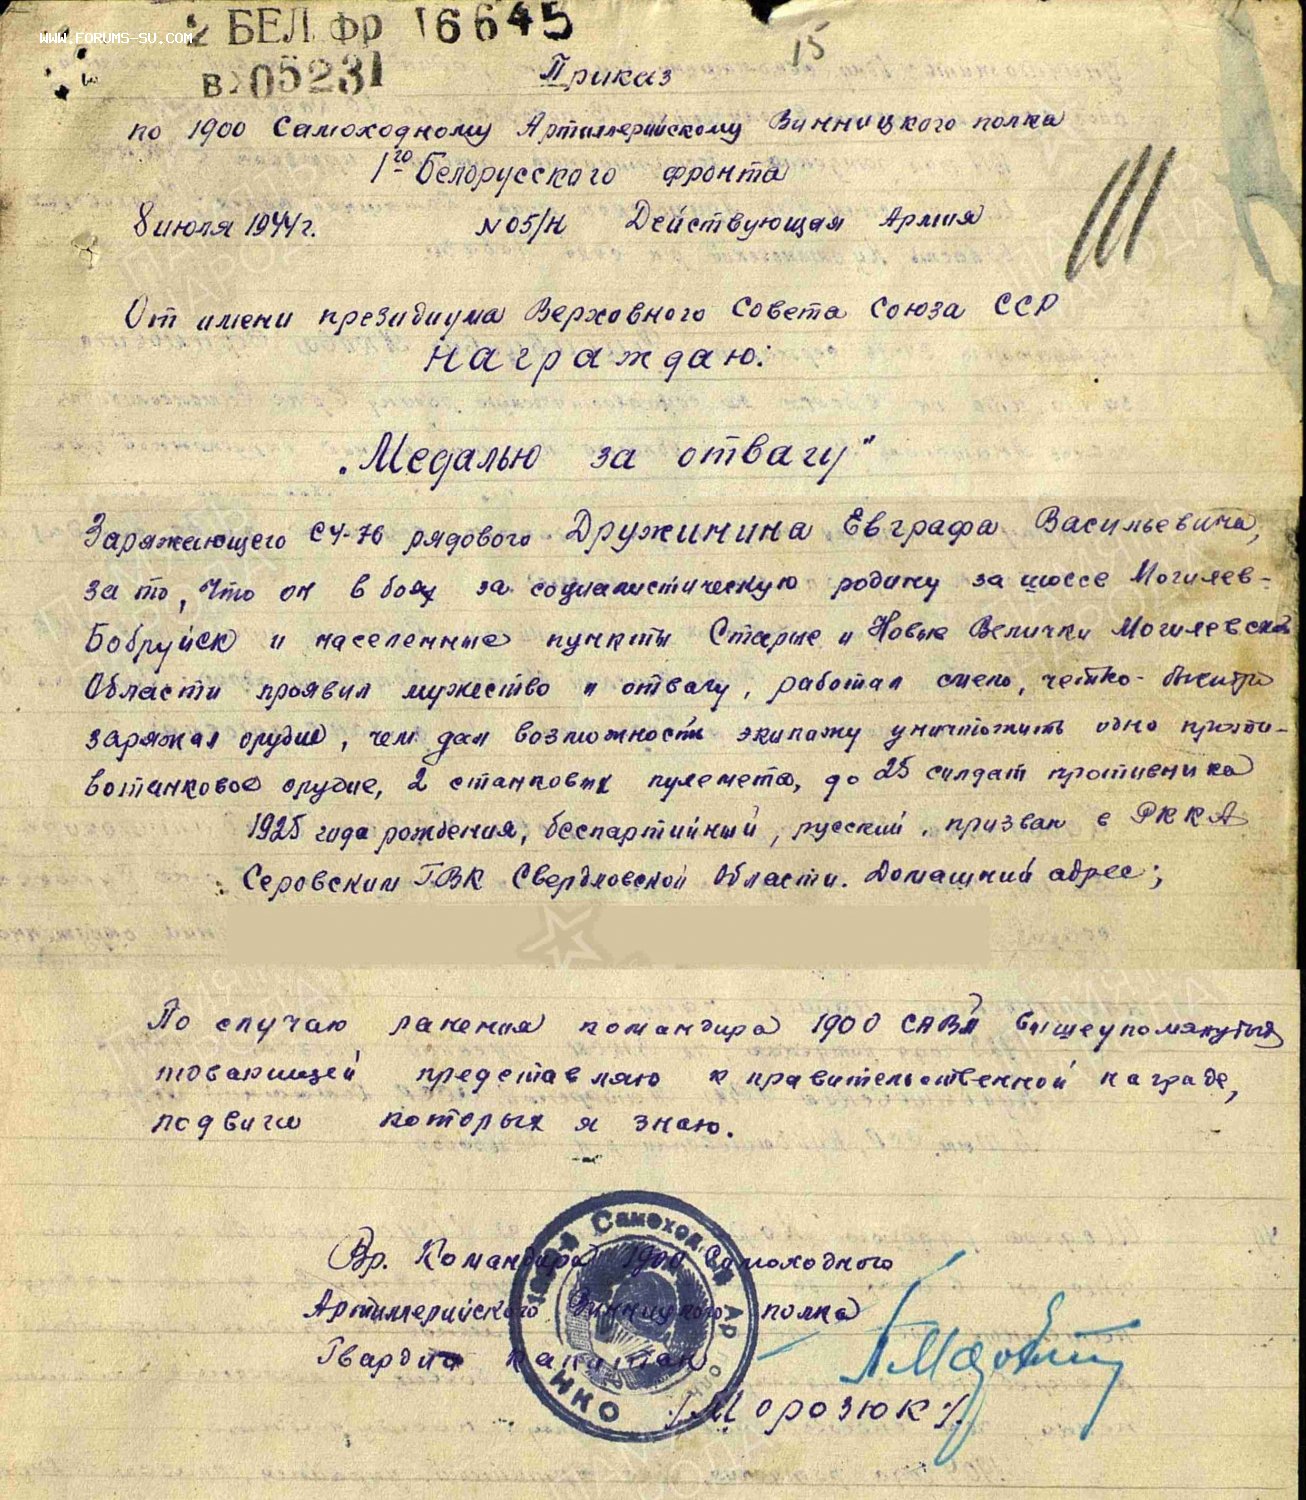 www.forums-su.com
2 БЕЛ.фр 16645
вх 05231
15
Приказ
по 1900 Самоходному Артиллерийскому Винницкого полка
1го Белорусского фронта
8 июля 1944 г. №05/н Действующая Армия
От имени президиума Верховного Совета Союза ССР
Награждаю:
„Медалью за отвагу"
Заряжающего СУ-76 рядового Дружинина Евграфа Васильевича,
за то, что он в боях за социалистическую родину за шоссе Могилев-
Бобруйск и населенные пункты Старые и Новые Велички Могилевской
Области проявил мужество и отвагу, работал смело, четко-быстро
заряжал орудие, чем дал возможность экипажу уничтожить одно проти-
вотанковое орудие, 2 станковых пулемета, до 25 солдат противника
1925 года рождения, беспартийный, русский, призван в РККА
Серовским ГВК Свердловской Области. Домашний адрес;
По случаю ранения командира 1900 САВП вышеупомянутых
товарищей представляю к правительственной награде,
подвиги которых я знаю.
Вр. Командира 1900 Самоходного
Артиллерийского Винницкого полка
Гвардии Капитан
/Морозюк/
Самоход Ар полк
НКО